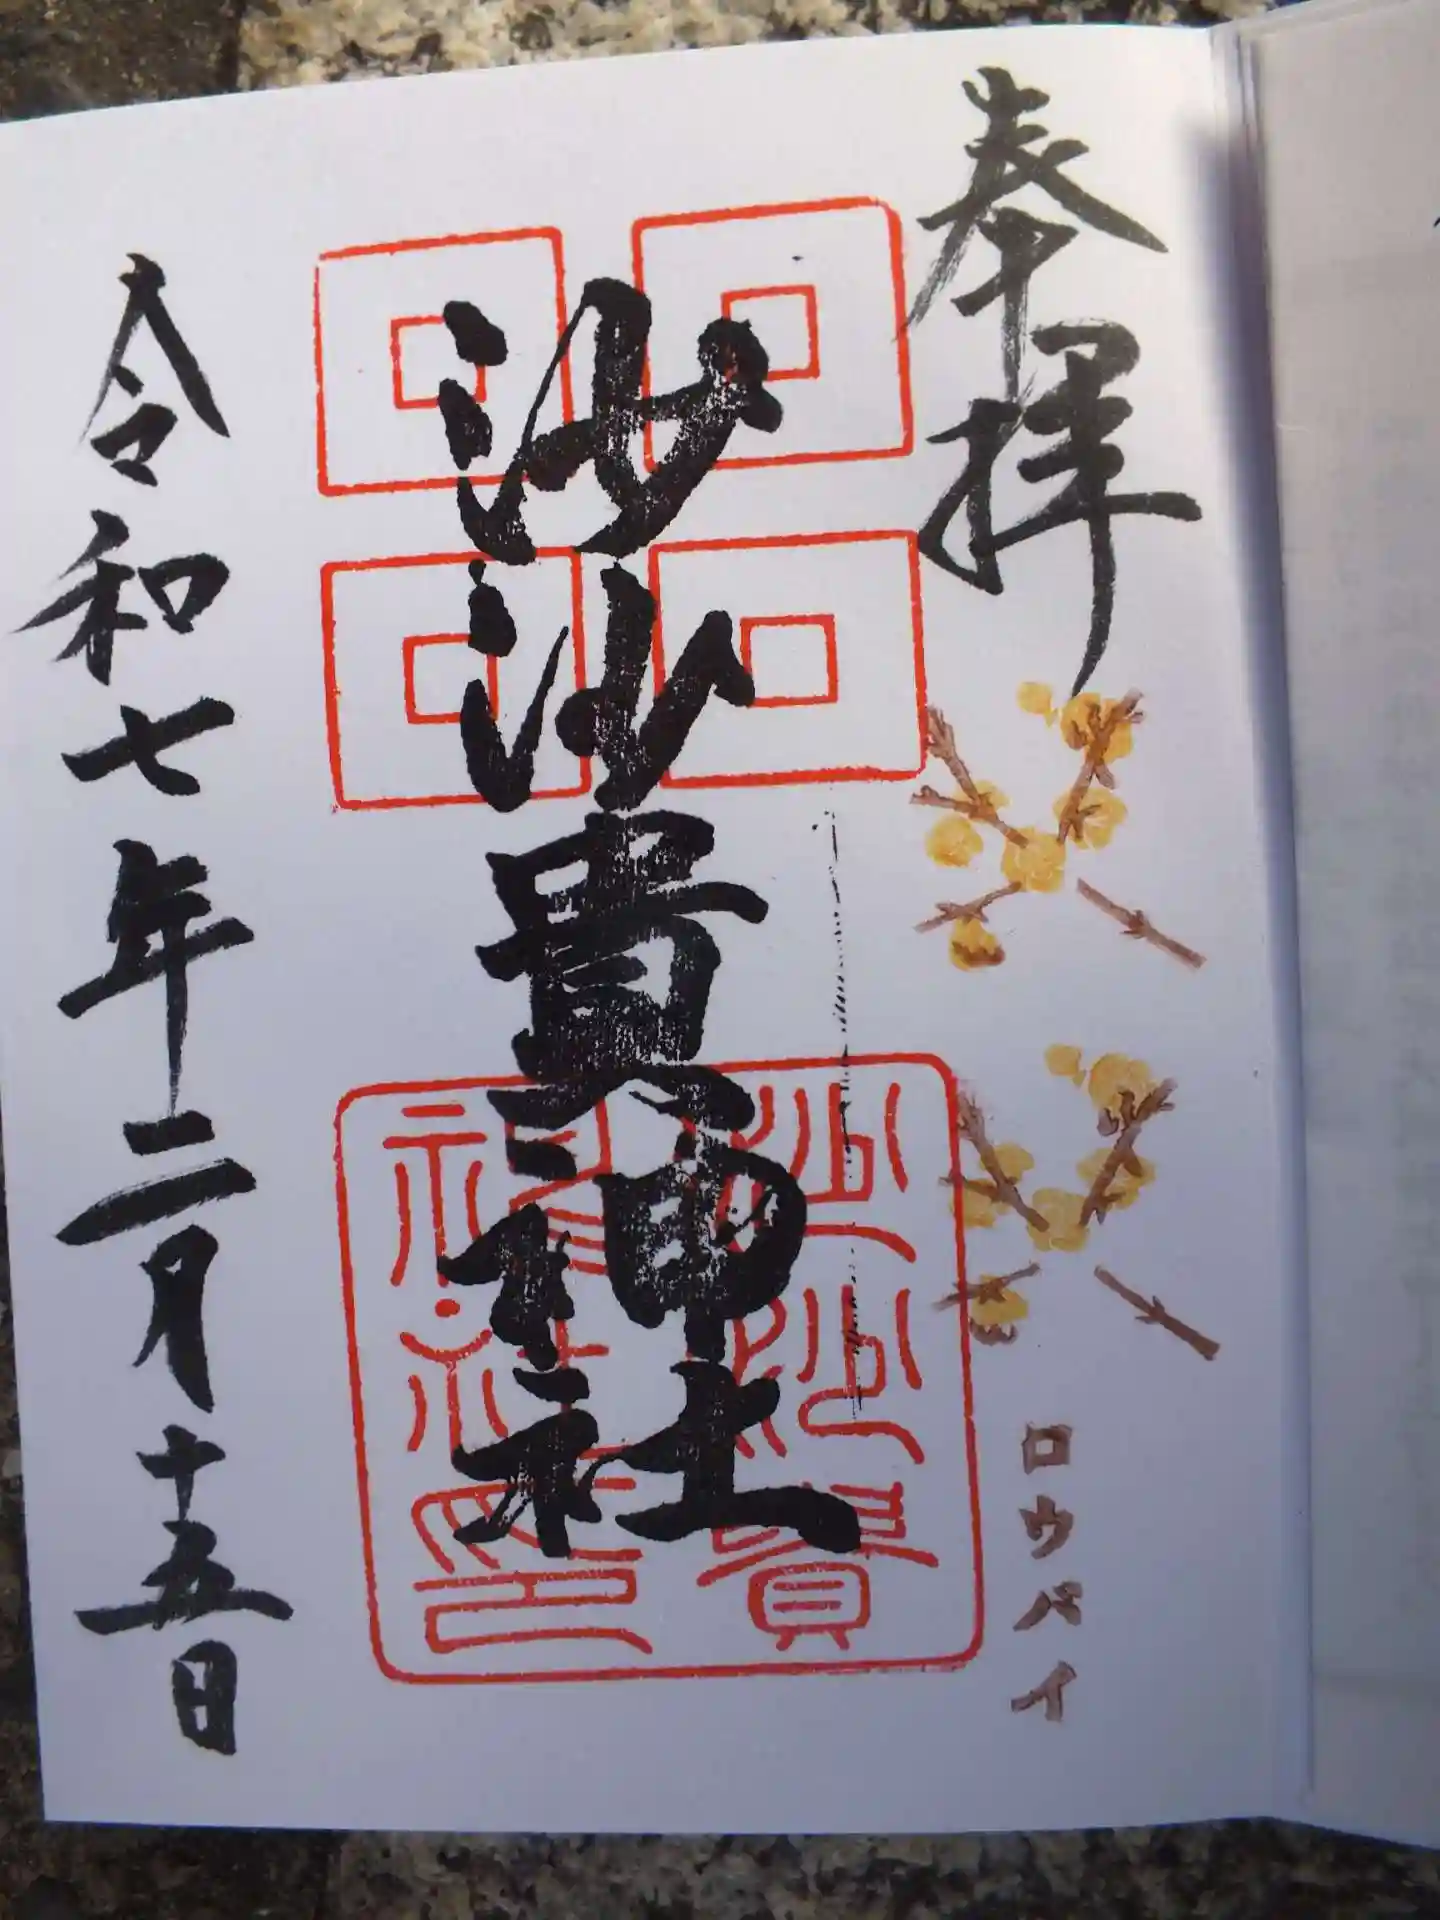 奉拝
ロウバイ
沙沙貴神社
沙沙貴
神社印
令和七年二月十五日